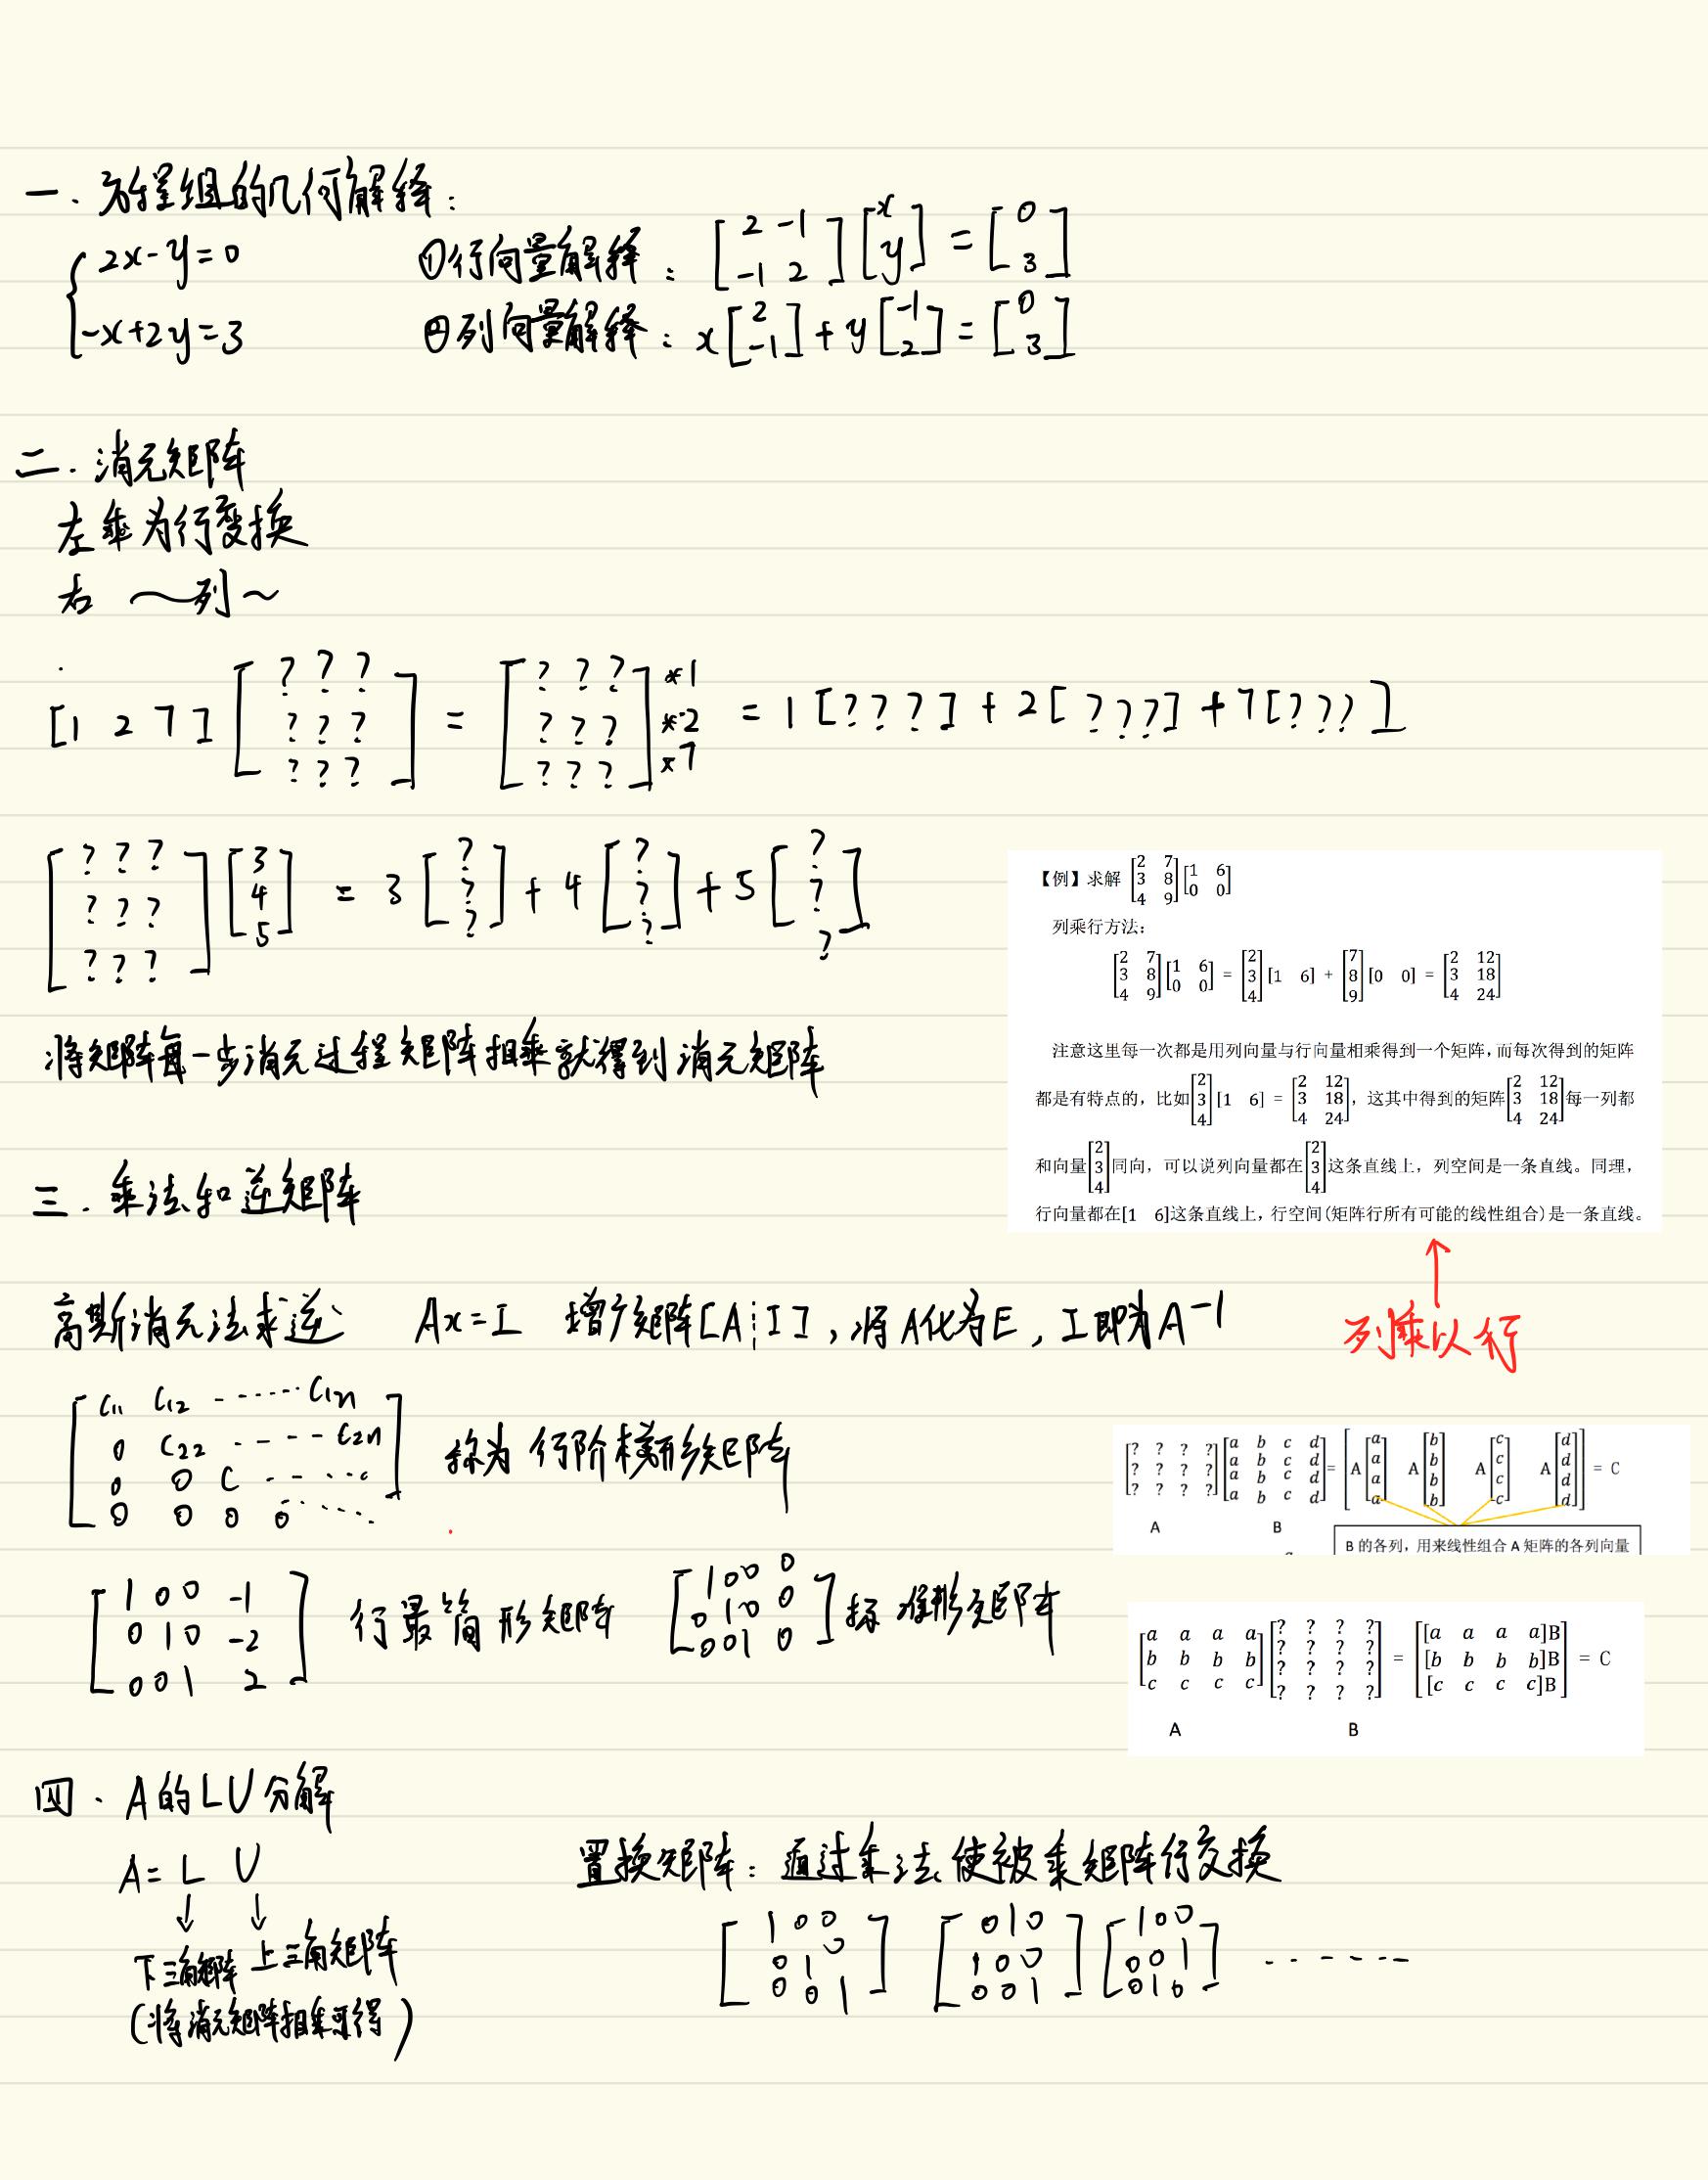 一. 方程组的几何解释:
{ 2x-y=0
-x+2y=3
①行向量解释: [2 -1; -1 2][x; y] = [0; 3]
②列向量解释: x[2; -1] + y[-1; 2] = [0; 3]
二. 消元矩阵
左乘为行变换
右 ～列～
[1 2 7][? ? ?; ? ? ?; ? ? ?] = [? ? ?; ? ? ?; ? ? ?] *1 *2 *7 = 1[? ? ?] + 2[? ? ?] + 7[? ? ?]
[? ? ?; ? ? ?; ? ? ?][3; 4; 5] = 3[?; ?; ?] + 4[?; ?; ?] + 5[?; ?; ?]
将矩阵每一步消元过程矩阵相乘就得到消元矩阵
【例】求解 [2 7; 3 8; 4 9][1 6; 0 0]
列乘行方法:
[2 7; 3 8; 4 9][1 6; 0 0] = [2; 3; 4][1 6] + [7; 8; 9][0 0] = [2 12; 3 18; 4 24]
注意这里每一次都是用列向量与行向量相乘得到一个矩阵，而每次得到的矩阵
都是有特点的，比如[2; 3; 4][1 6] = [2 12; 3 18; 4 24]，这其中得到的矩阵[2 12; 3 18; 4 24]每一列都
和向量[2; 3; 4]同向，可以说列向量都在[2; 3; 4]这条直线上，列空间是一条直线。同理，
行向量都在[1 6]这条直线上，行空间(矩阵行所有可能的线性组合)是一条直线。
↑
列乘以行
三. 乘法和逆矩阵
高斯消元法求逆 Ax=I 增广矩阵[A¦I], 将A化为E, I即为A⁻¹
[C11 C12 ------ C1n; 0 C22 ----- C2n; 0 0 C ----- c; 0 0 0 0 ......] 称为 行阶梯形矩阵
[? ? ? ?; ? ? ? ?; ? ? ? ?][a b c d; a b c d; a b c d; a b c d] = [A[a; a; a; a] A[b; b; b; b] A[c; c; c; c] A[d; d; d; d]] = C
A B
B 的各列，用来线性组合 A 矩阵的各列向量
[1 0 0 -1; 0 1 0 -2; 0 0 1 2] 行最简形矩阵 [1 0 0 0; 0 1 0 0; 0 0 1 0] 标准形矩阵
[a a a a; b b b b; c c c c][? ? ? ?; ? ? ? ?; ? ? ? ?; ? ? ? ?] = [[a a a a]B; [b b b b]B; [c c c c]B] = C
A B
四. A的LU分解
A= L U
↓ ↓
下三角矩阵 上三角矩阵
(将消元矩阵相乘可得)
置换矩阵: 通过乘法使被乘矩阵行交换
[1 0 0; 0 1 0; 0 0 1] [0 1 0; 1 0 0; 0 0 1] [1 0 0; 0 0 1; 0 1 0] ------